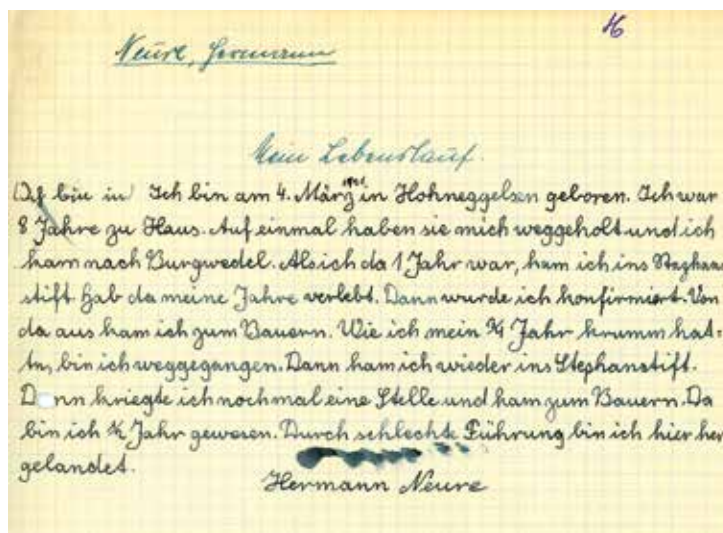 16
Neure, Hermann
Mein Lebenslauf.
Ich bin in Ich bin am 4. März in Hohneggelsen geboren. Ich war
8 Jahre zu Haus. Auf einmal haben sie mich weggeholt und ich
kam nach Burgwedel. Als ich da 1 Jahr war, kam ich ins Stephans
stift hab da meine Jahre verlebt. Dann wurde ich konfirmiert. Von
da aus kam ich zum Bauern. Wie ich mein ¾ Jahr krumm hat-
te, bin ich weggegangen. Dann kam ich wieder ins Stephanstift.
Dann kriegte ich nochmal eine Stelle und kam zum Bauern. Da
bin ich Jahr gewesen. Durch schlechte Führung bin ich hier her
gelandet.
Hermann Neure